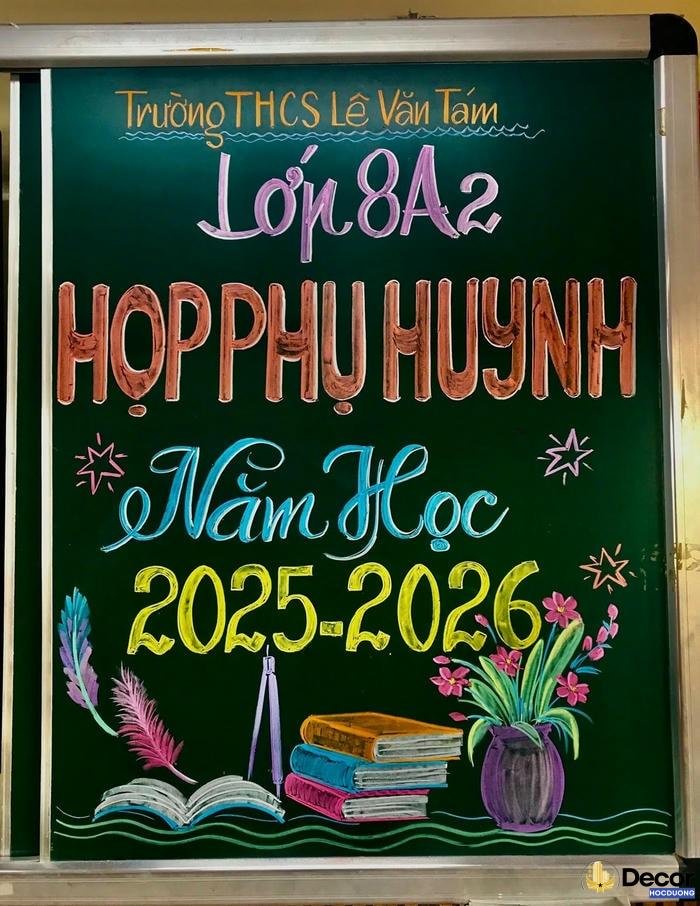 Trường THCS Lê Văn Tám
Lớp 8A2
HỌP PHỤ HUYNH
Năm Học
2025-2026
Decor
HOCDUONG